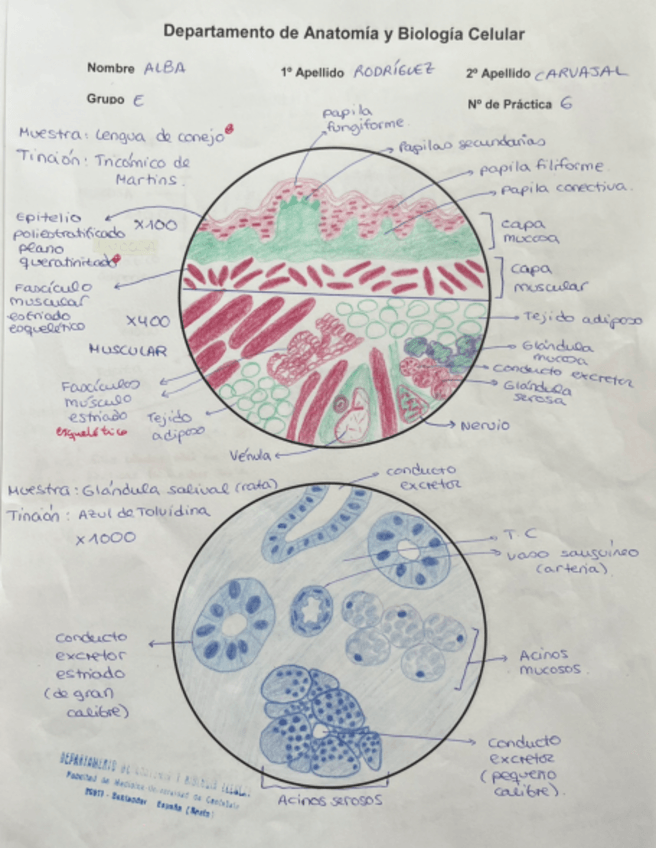 Departamento de Anatomía y Biología Celular
Nombre ALBA
1º Apellido RODRÍGUEZ
2º Apellido CARVAJAL
Grupo E
Nº de Práctica 6
Muestra: Lengua de conejo
Tinción: Tricómico de
Martins.
papila
fungiforme
Papilas secundarias
papila filiforme
papila conectiva.
Epitelio
poliestratificado
plano
queratinitado
x100
capa
mucosa
capa
muscular
Fascículo
muscular
estriado
esquelético
x400
MUSCULAR
Tejido adiposo
Glándula
mucosa
conducto excretor
Glándula
serosa
Fascículos
músculo
estriado
esquelético
Tejido
adiposo
Nervio
Vénula
Muestra: Glándula salival (rata)
Tinción: Azul de Toluidina
x1000
conducto
excretor
T.C
vaso sanguíneo
(arteria)
conducto
excretor
estriado
(de gran
calibre)
Acinos
mucosos.
conducto
excretor
(pequeño
calibre).
Acinos serosos
DEPARTAMENTO DE
Facultad de Medicina Universidad de Cantabria
Santander España